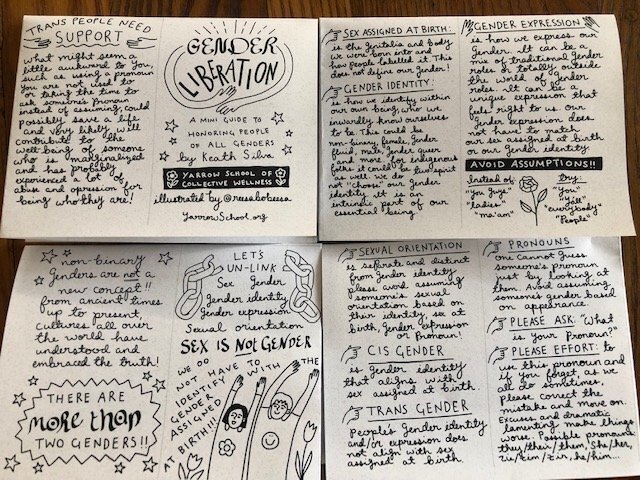 TRANS PEOPLE NEED
SUPPORT
what might seem a
little awkward to you,
such as using a pronoun
you are not used to
or taking the time to
ask someone's pronoun
instead of assuming, could
possibly save a life
and very likely will
contribute to the
well being of someone
who is marginalized
and has probably
experienced a lot of
abuse and opression for
being who they are!
GENDER
LIBERATION
A MINI GUIDE TO
HONORING PEOPLE OF
ALL GENDERS
by Keath Silva
YARROW SCHOOL OF
COLLECTIVE WELLNESS
illustrated by @resalobeesa
YarrowSchool.org
SEX ASSIGNED AT BIRTH:
is the Genitalia and Body
we were born into and
how people labelled it. This
does not define our Gender!
GENDER IDENTITY:
is how we identify within
our own being, who we
inwardly know ourselves
to be. This could be
non-binary, female, Gender
fluid, male, Gender queer
and more. for indigenous
folks it could be two spirit
as well. we do not
"choose" our Gender
identity. it is an
intrinsic part of our
essential being.
GENDER EXPRESSION
is how we express our
Gender. It can be a
mix of traditional Gender
roles or totally outside
the world of gender
roles. It can be a
unique expression that
feels right to us. our
Gender expression does
not have to match
our sex assigned at birth
or our Gender identity
AVOID ASSUMPTIONS!!
Instead of:
"you guys"
"ladies"
"ma'am"
try:
"You"
"Y'all"
"everybody"
"People"
non-binary
Genders are not a
new concept!!
from ancient times
up to present,
cultures all over
the world have
understood and
embraced the truth!
THERE ARE
MORE THAN
TWO GENDERS!!
LET'S
UN-LINK
Sex Gender
Gender identity
Gender expression
Sexual orientation
SEX IS NOT GENDER
WE DO
NOT HAVE TO
IDENTIFY WITH THE
GENDER
ASSIGNED
AT BIRTH!!!
SEXUAL ORIENTATION
is separate and distinct
from Gender identity
please avoid assuming
someone's sexual
orientation based on
their identity, sex at
birth, Gender expression
or Pronoun!
CIS GENDER
is Gender identity
that aligns with
sex assigned at birth
TRANS GENDER
People's Gender identity
and/or expression does
not align with sex
assigned at birth.
PRONOUNS
one cannot Guess
someone's pronoun
just by looking at
them. Avoid assuming
someone's gender based
on appearance
PLEASE ASK: "What
is your Pronoun?"
PLEASE EFFORT: to
use this pronoun and
if you forget as we
all do sometimes,
Please correct the
mistake and move on.
Excuses and dramatic
lamenting make things
worse. Possible pronouns
they/their/them, She/her
zie/zim/zir, he/him...